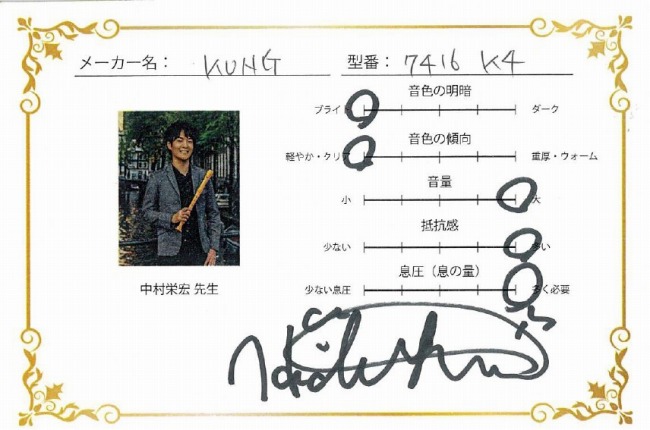 メーカー名： KUNG 型番： 7416 K4
音色の明暗
ブライト ダーク
音色の傾向
軽やか・クリア 重厚・ウォーム
音量
小 大
抵抗感
少ない 多い
息圧（息の量）
少ない息圧 多く必要
中村栄宏 先生